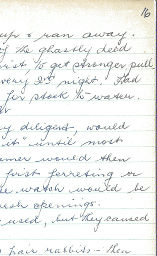 16
up & ran away.
of the ghastly deed
rist to get stronger pull
very I's night. Had
for stock to water.
or
y diligent, would
it until most
mer would then
first ferreting or
e watch would be
resh openings.
used, but they caused
hair rabbits - then